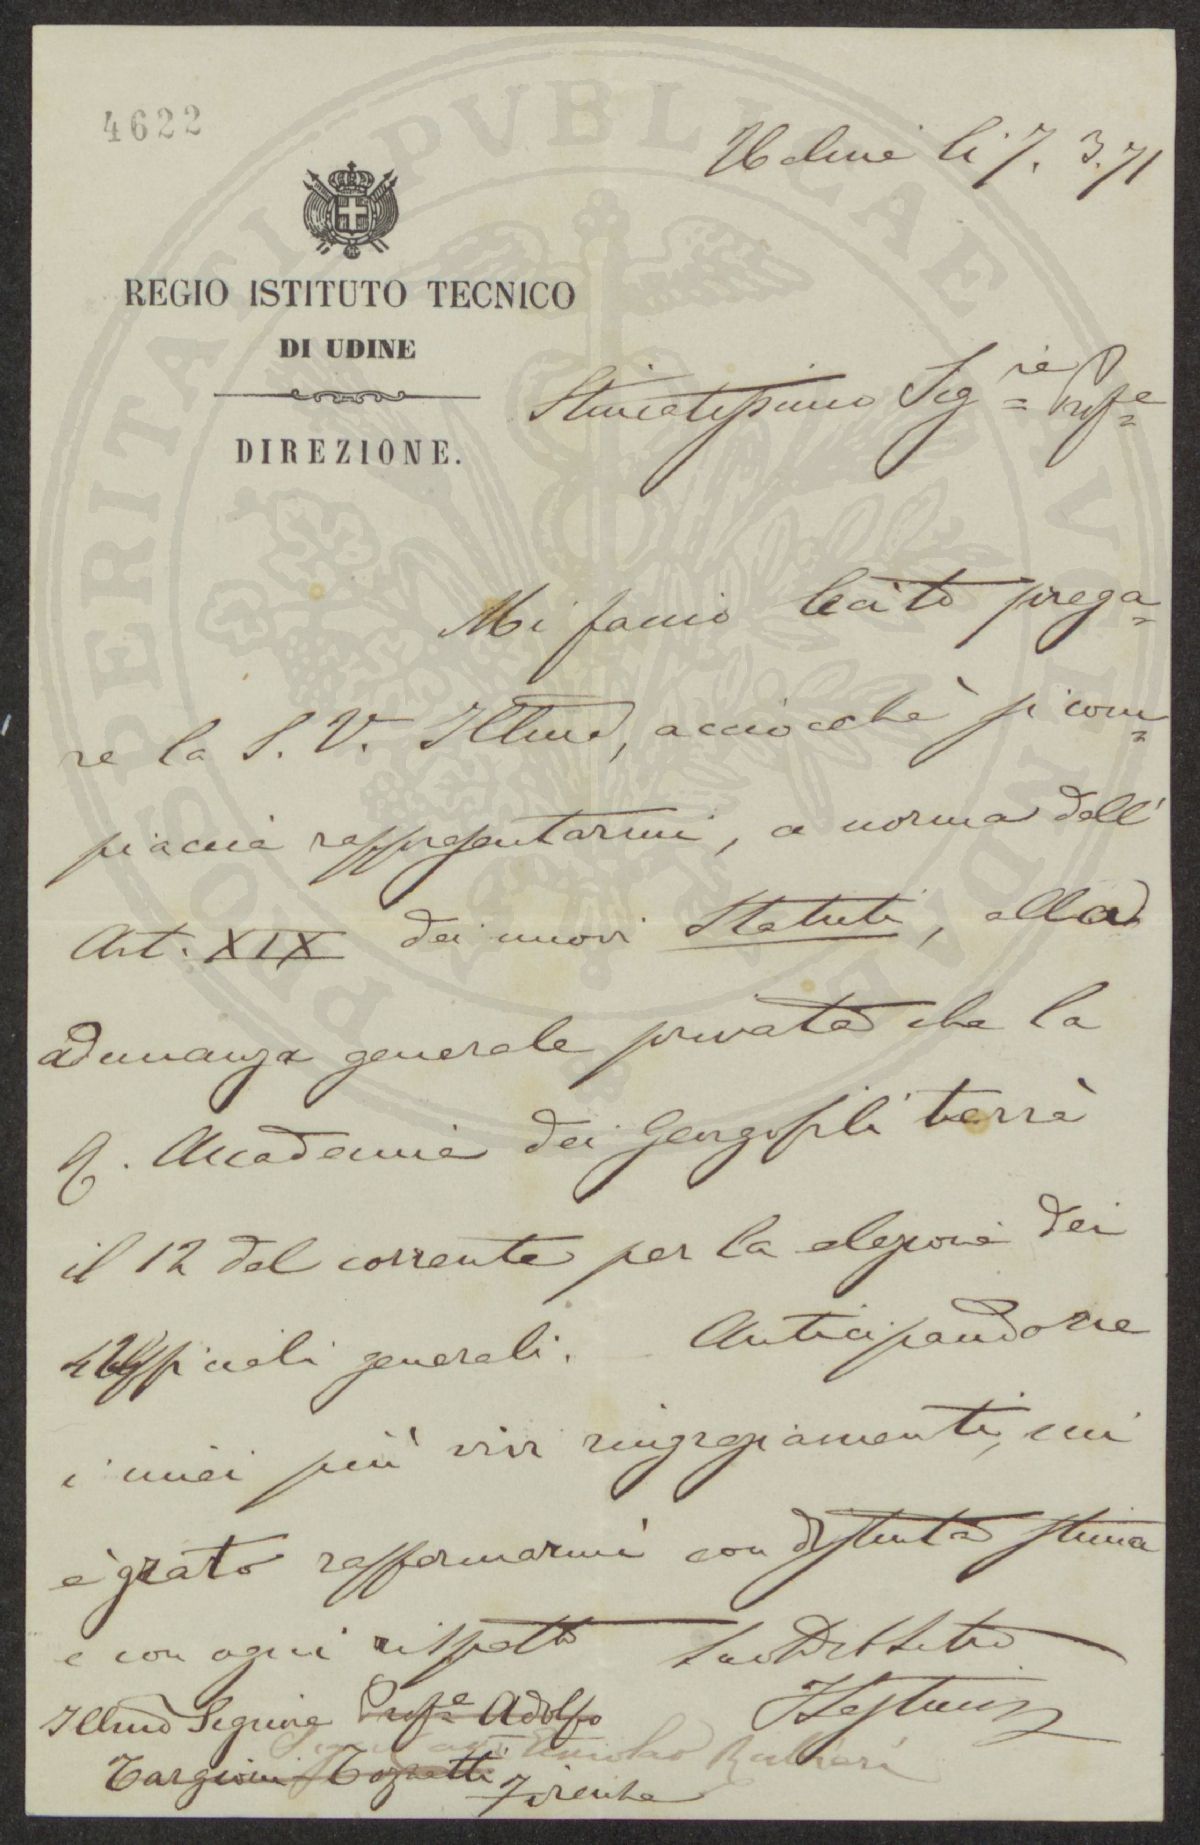 4622
Udine li 7. 3. 71
REGIO ISTITUTO TECNICO
DI UDINE
DIREZIONE.
Stimatissimo Sig.re Prof.e
Mi faccio lecito prega=
re la S. V. Illma, acciocchè si com=
piaccia rappresentarmi, a norma dell'
Art. XIX dei nuovi Statuti, alla
adunanza generale privata che la
R. Accademia dei Georgofili terrà
il 12 del corrente per la elezione dei
Uffiziali generali. Anticipandone
i miei più vivi ringraziamenti, mi
è grato raffermarmi con distinta stima
e con ogni rispetto
Illmo Signore Prof.e Adolfo
Targioni Tozzetti
Firenze
PROSPERITATI PVBLICAE AVGENDAE